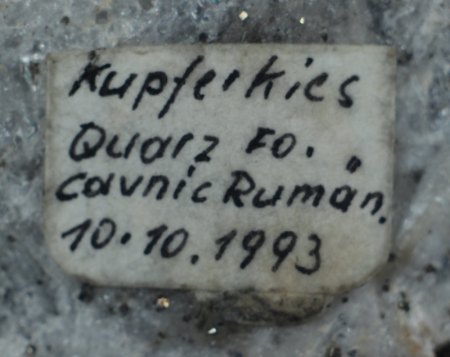 Kupferkies
Quarz Fo.
Cavnic Rumän.
10.10.1993